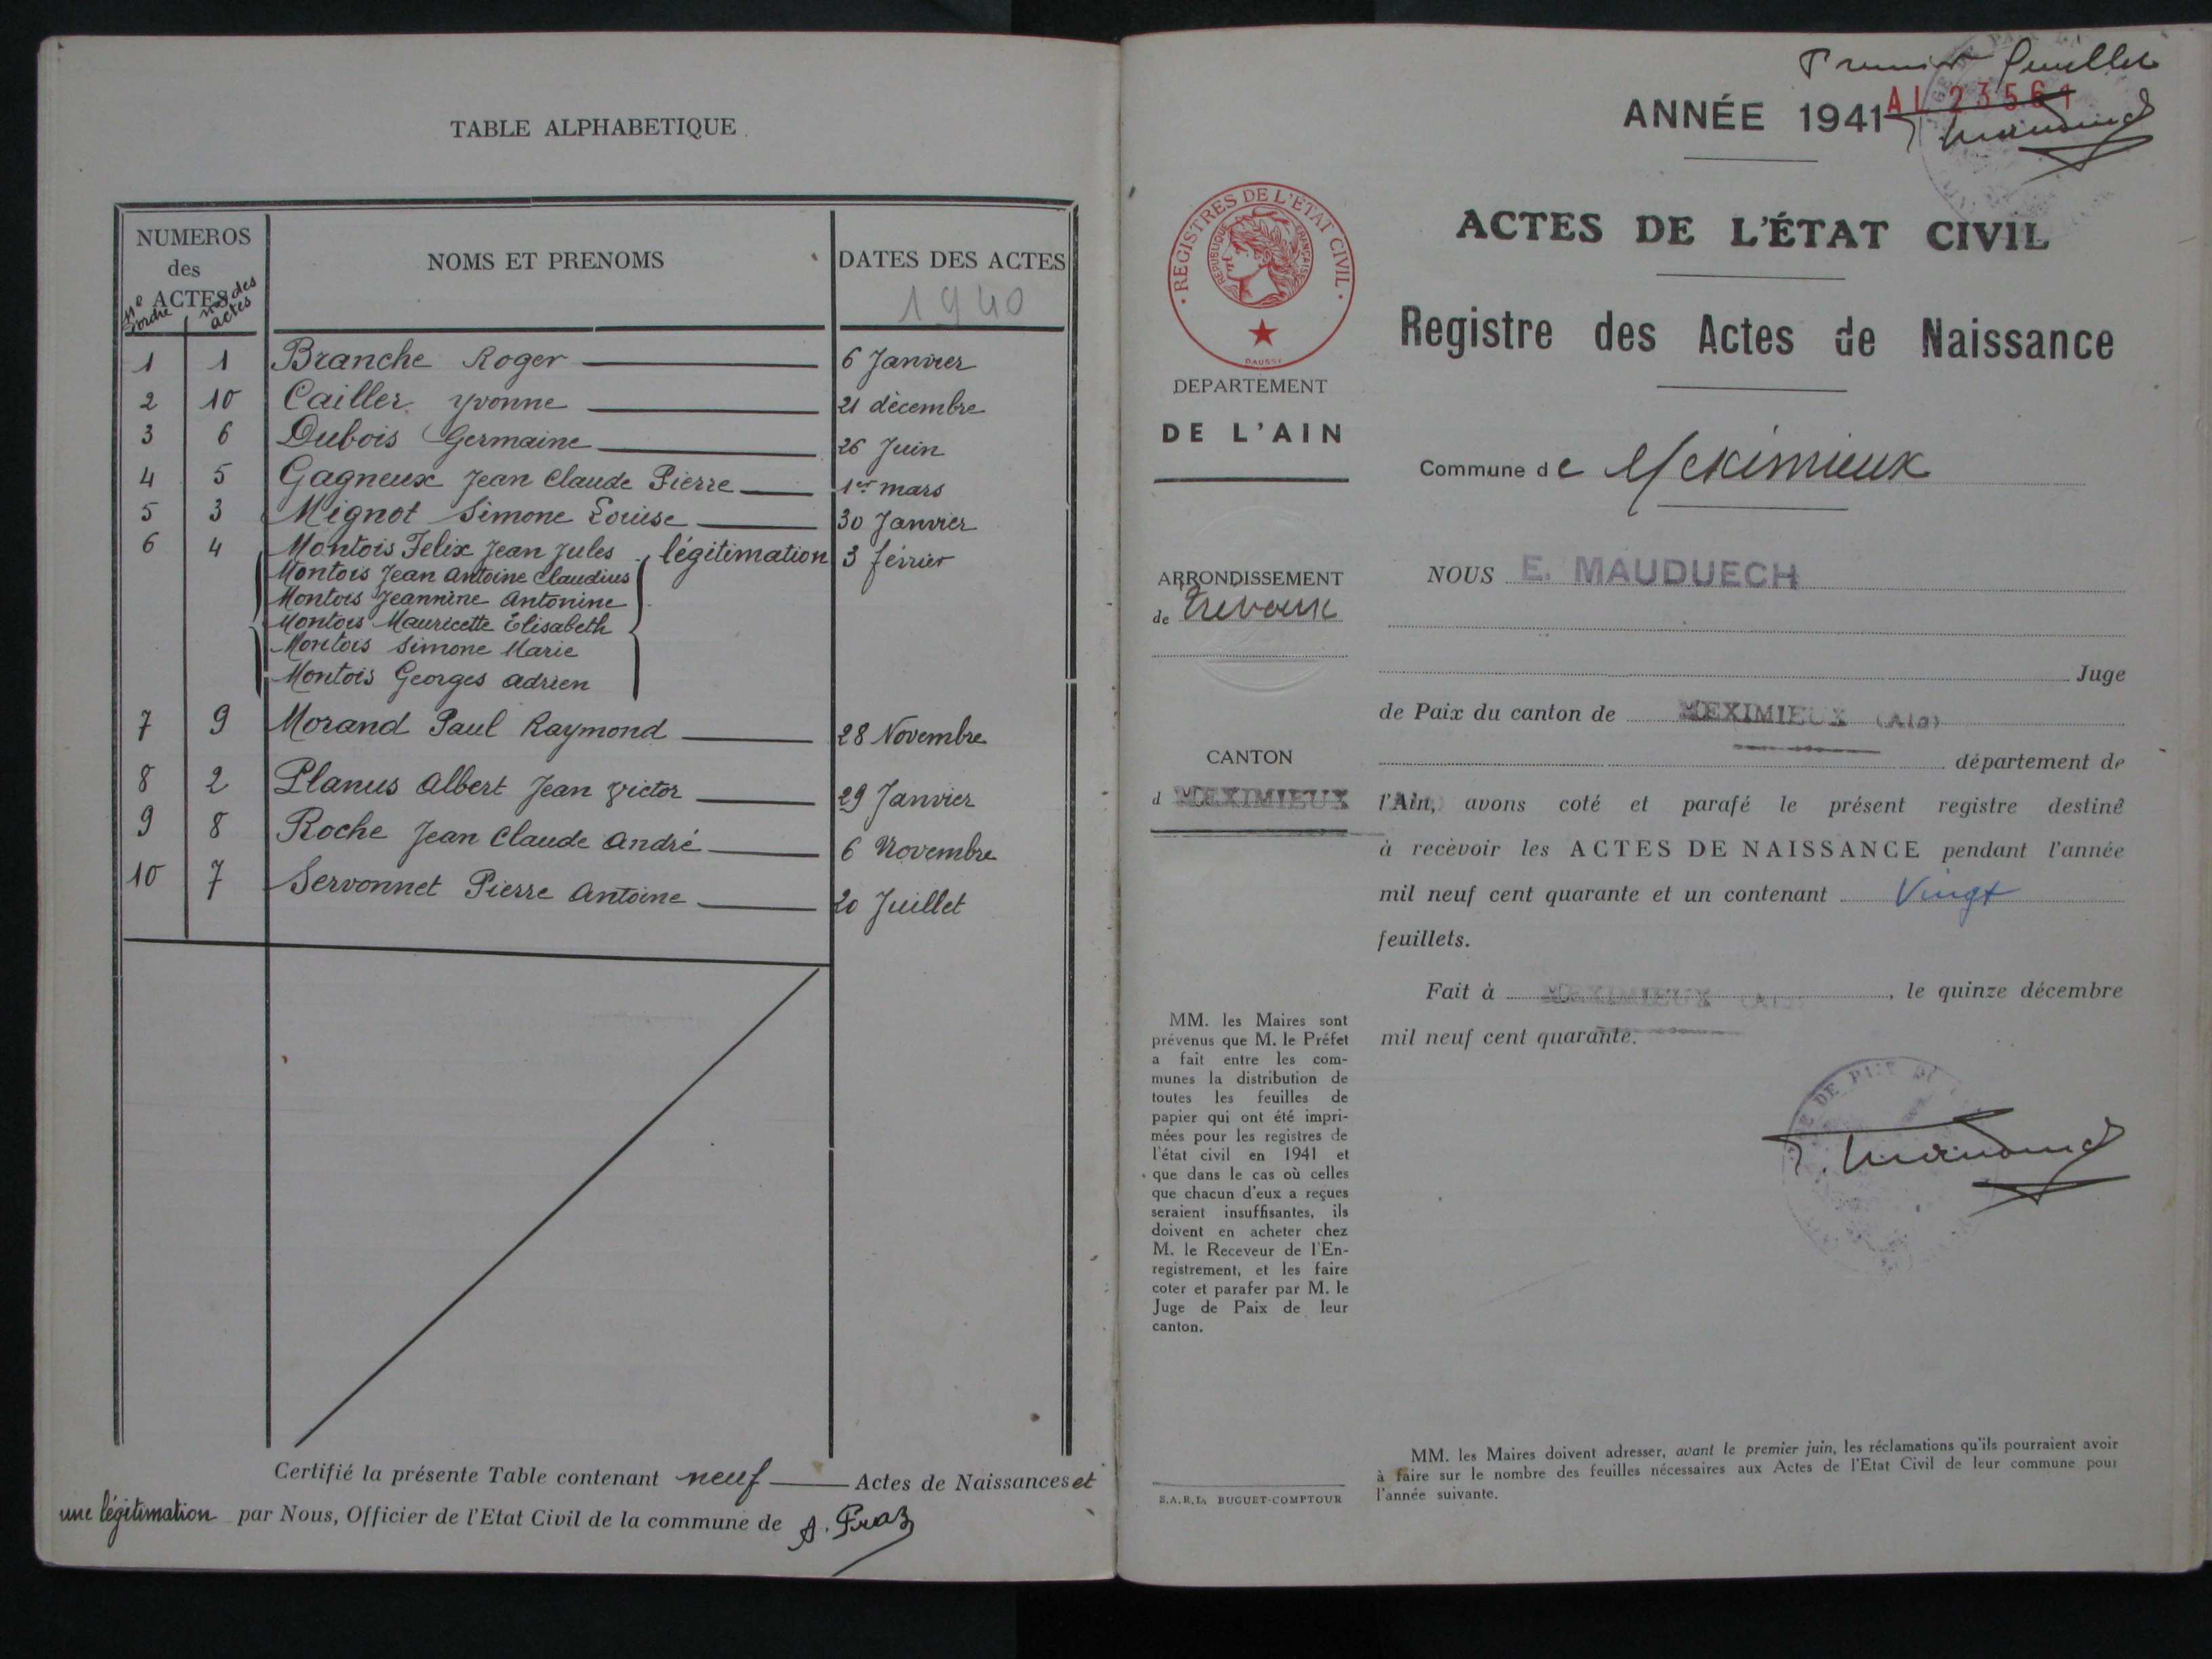 TABLE ALPHABETIQUE
NUMEROS
des
ACTES
N° ordre
nos des actes
NOMS ET PRENOMS
DATES DES ACTES
1940
1 1 Branche Roger 6 Janvier
2 10 Cailler Yvonne 21 décembre
3 6 Dubois Germaine 26 Juin
4 5 Gagneux Jean Claude Pierre 1er mars
5 3 Mignot Simone Louise 30 Janvier
6 4 Montois Felix Jean Jules légitimation 3 février
Montois Jean Antoine Claudius
Montois Jeannine Antonine
Montois Mauricette Elisabeth
Montois Simone Marie
Montois Georges Adrien
7 9 Morand Paul Raymond 28 Novembre
8 2 Planus Albert Jean Victor 29 Janvier
9 8 Roche Jean Claude André 6 Novembre
10 7 Servonnet Pierre Antoine 20 Juillet
Certifié la présente Table contenant neuf Actes de Naissances et
une légitimation par Nous, Officier de l'Etat Civil de la commune de
Premier feuillet
AL 23561
ANNÉE 1941
ACTES DE L'ÉTAT CIVIL
Registre des Actes de Naissance
REGISTRES DE L'ÉTAT CIVIL
REPUBLIQUE FRANÇAISE
DAUSSY
DEPARTEMENT
DE L'AIN
ARRONDISSEMENT
de Trévoux
CANTON
d MEXIMIEUX
Commune de Meximieux
NOUS E. MAUDUECH
Juge
de Paix du canton de MEXIMIEUX (Ain)
département de
l'Ain, avons coté et parafé le présent registre destiné
à recevoir les ACTES DE NAISSANCE pendant l'année
mil neuf cent quarante et un contenant Vingt
feuillets.
Fait à MEXIMIEUX (Ain), le quinze décembre
mil neuf cent quarante.
MM. les Maires sont
prévenus que M. le Préfet
a fait entre les com-
munes la distribution de
toutes les feuilles de
papier qui ont été impri-
mées pour les registres de
l'état civil en 1941 et
que dans le cas où celles
que chacun d'eux a reçues
seraient insuffisantes, ils
doivent en acheter chez
M. le Receveur de l'En-
registrement, et les faire
coter et parafer par M. le
Juge de Paix de leur
canton.
S.A.R.L. BUGUET-COMPTOUR
MM. les Maires doivent adresser, avant le premier juin, les réclamations qu'ils pourraient avoir
à faire sur le nombre des feuilles nécessaires aux Actes de l'Etat Civil de leur commune pour
l'année suivante.